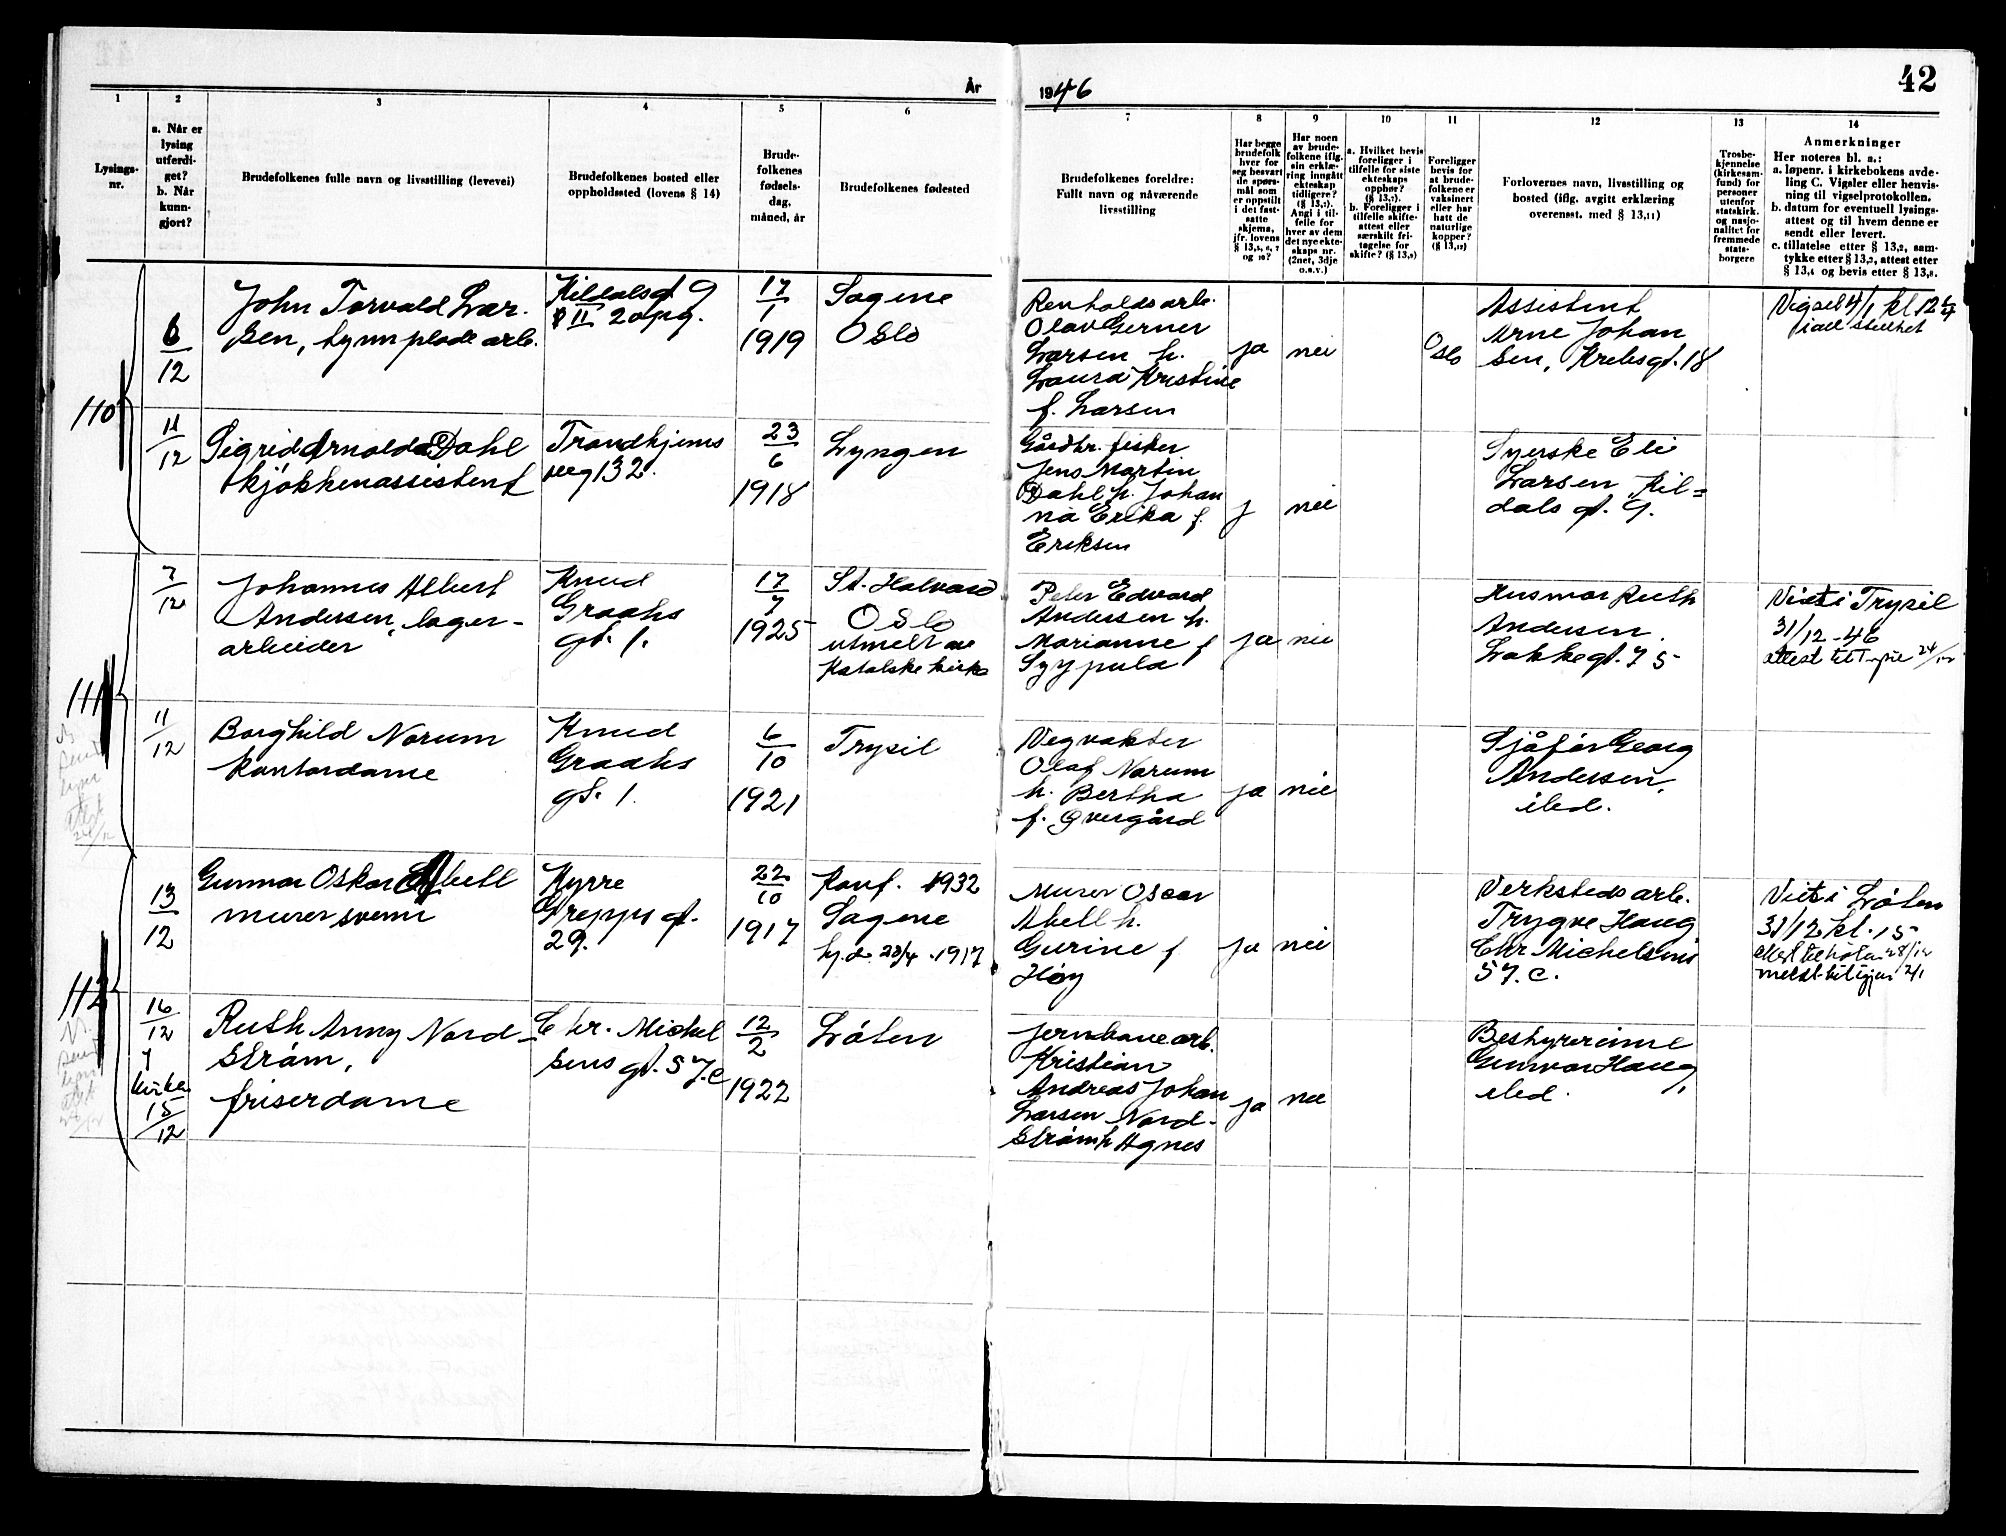 År
1946
42
1
2
3
4
5
6
7
8
9
10
11
12
13
14
Lysings-
nr.
a. Når er
lysing
utferdi-
get?
b. Når
kunn-
gjort?
Brudefolkenes fulle navn og livsstilling (levevei)
Brudefolkenes bosted eller
oppholdssted (lovens § 14)
Brude-
folkenes
fødsels-
dag,
måned, år
Brudefolkenes fødested
Brudefolkenes foreldre:
Fullt navn og nåværende
livsstilling
Har begge
brudefolk
hver for
seg besvart
de spørs-
mål som
er oppstilt
i det fast-
satte
skjema,
jfr. lovens
og 10?
Har noen
av brude-
folkene iflg.
sin erklæ-
ring inngått
ekteskap
tidligere?
Angi i til-
felle for
hver av dem
det nye ekte-
skaps nr.
(2net, 3dje
o.s.v.)
a. Hvilket bevis
foreligger i
tilfelle for siste
ekteskaps
opphør?
b. Foreligger i
tilfelle skifte-
attest eller
særskilt fri-
tagelse for
skifte?
Foreligger
bevis for
at brude-
folkene er
vaksinert
eller har
hatt de
naturlige
kopper?
Forlovernes navn, livsstilling og
bosted (iflg. avgitt erklæring
overensst. med § 13,11)
Trosbe-
kjennelse
(kirkesam-
fund) for
personer
utenfor
statskirk.
og nasjo-
nalitet for
fremmede
stats-
borgere
Anmerkninger
Her noteres bl. a.:
a. løpenr. i kirkebokens avde-
ling C. Vigsler eller henvis-
ning til vigselprotokollen.
b. datum for eventuell lysings-
attest og til hvem denne er
sendt eller levert.
c. tillatelse etter § 13,2, sam-
tykke etter § 13,3, attest etter
§ 13,4 og bevis etter § 13,8.
110
6/12
John Torvald Lar-
sen, tynnplade arb.
Kildalsgt 9
II 2 opg.
17/1
1919
Sagene
Oslo
Renholdsarb.
Olav Gerner
Larsen h.
Laura Kristine
f. Larsen
ja
nei
Oslo
Assistent
Arne Johan
sen, Krebsgt. 18
Vigsel 4/1 kl 12
i all stillhet
11/12
Sigrid Arnolda Dahl
kjøkkenassistent
Trondhjems
veg 132.
23/6
1918
Lyngen
Gårdbr. fisker
Jens Martin
Dahl h. Johan
na Erika f.
Eriksen
j
nei
Syerske Eli
Larsen Kil=
dals gt. 9.
111
7/12
Johannes Albert
Andersen, lager-
arbeider
Knud
Graahs
gt. 1.
17/7
1925
St. Halvard
Oslo
utmelt av
Katolske kirke
Peter Edvard
Andersen h.
Marianne f
Szypula
ja
nei
Husmor Ruth
Andersen.
Lakkegt. 75
Viet i Trysil
31/12-46
attest til Trysil 24/12
11/12
Borghild Norum
kontordame
Knud
Graahs
gt. 1.
6/10
1921
Trysil
Vegvokter
Olaf Norum
h. Bertha
f. Øvergård
ja
nei
Sjåfør Georg
Andersen,
ibid.
112
13/12
Gunnar Oskar Abell
murersvenn
Kyrre
Grepps gt.
29.
22/10
1917
Konf. 1932
Sagene
hj.d. 23/4 . 1917
Murer Oscar
Abell h.
Gurine f
Høy
ja
nei
Verkstedsarb.
Trygve Haug
Chr Michelsens
57. C.
Viet i Løten
31/12 kl. 15
attest til Løten 28/12
16/12
7
kirke
15/12
Ruth Anny Nord-
strøm,
friserdame
Chr. Michel
sens gt. 57. c
12/2
1922
Løten
Jernbanearb.
Kristian
Andreas Johan
Larsen Nord-
strøm h Agnes
ja
nei
Bestyrerinne
Gunvor Haug,
ibid.